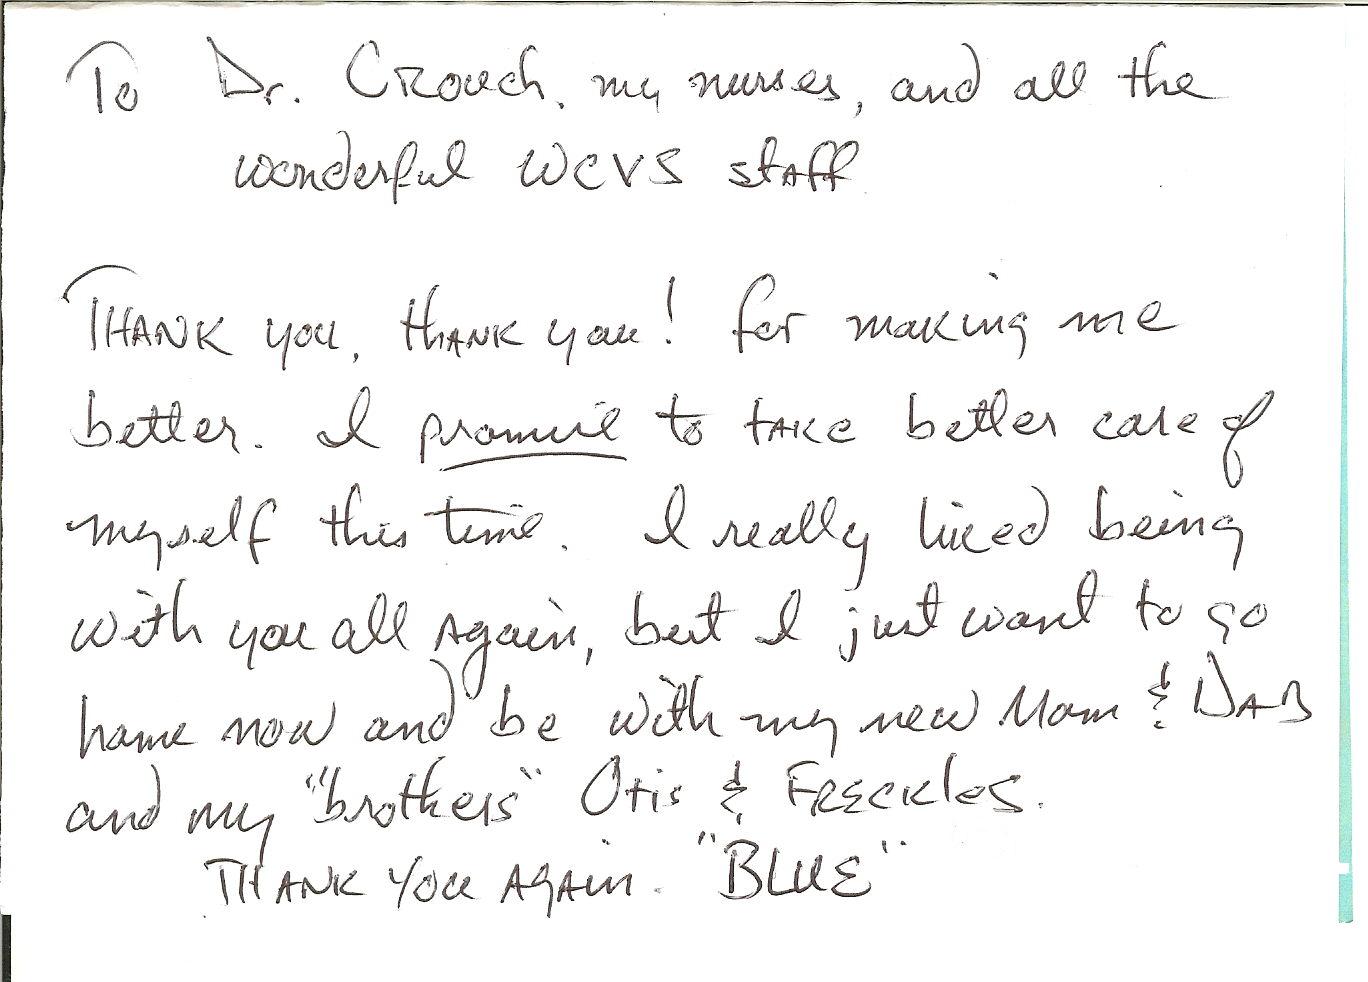 To Dr. Crouch, my nurses, and all the
wonderful WCVS staff
Thank you, thank you! for making me
better. I promise to take better care of
myself this time. I really liked being
with you all again, but I just want to go
home now and be with my new Mom & Dad
and my "brothers" Otis & Freckles.
Thank you again. "BLUE"